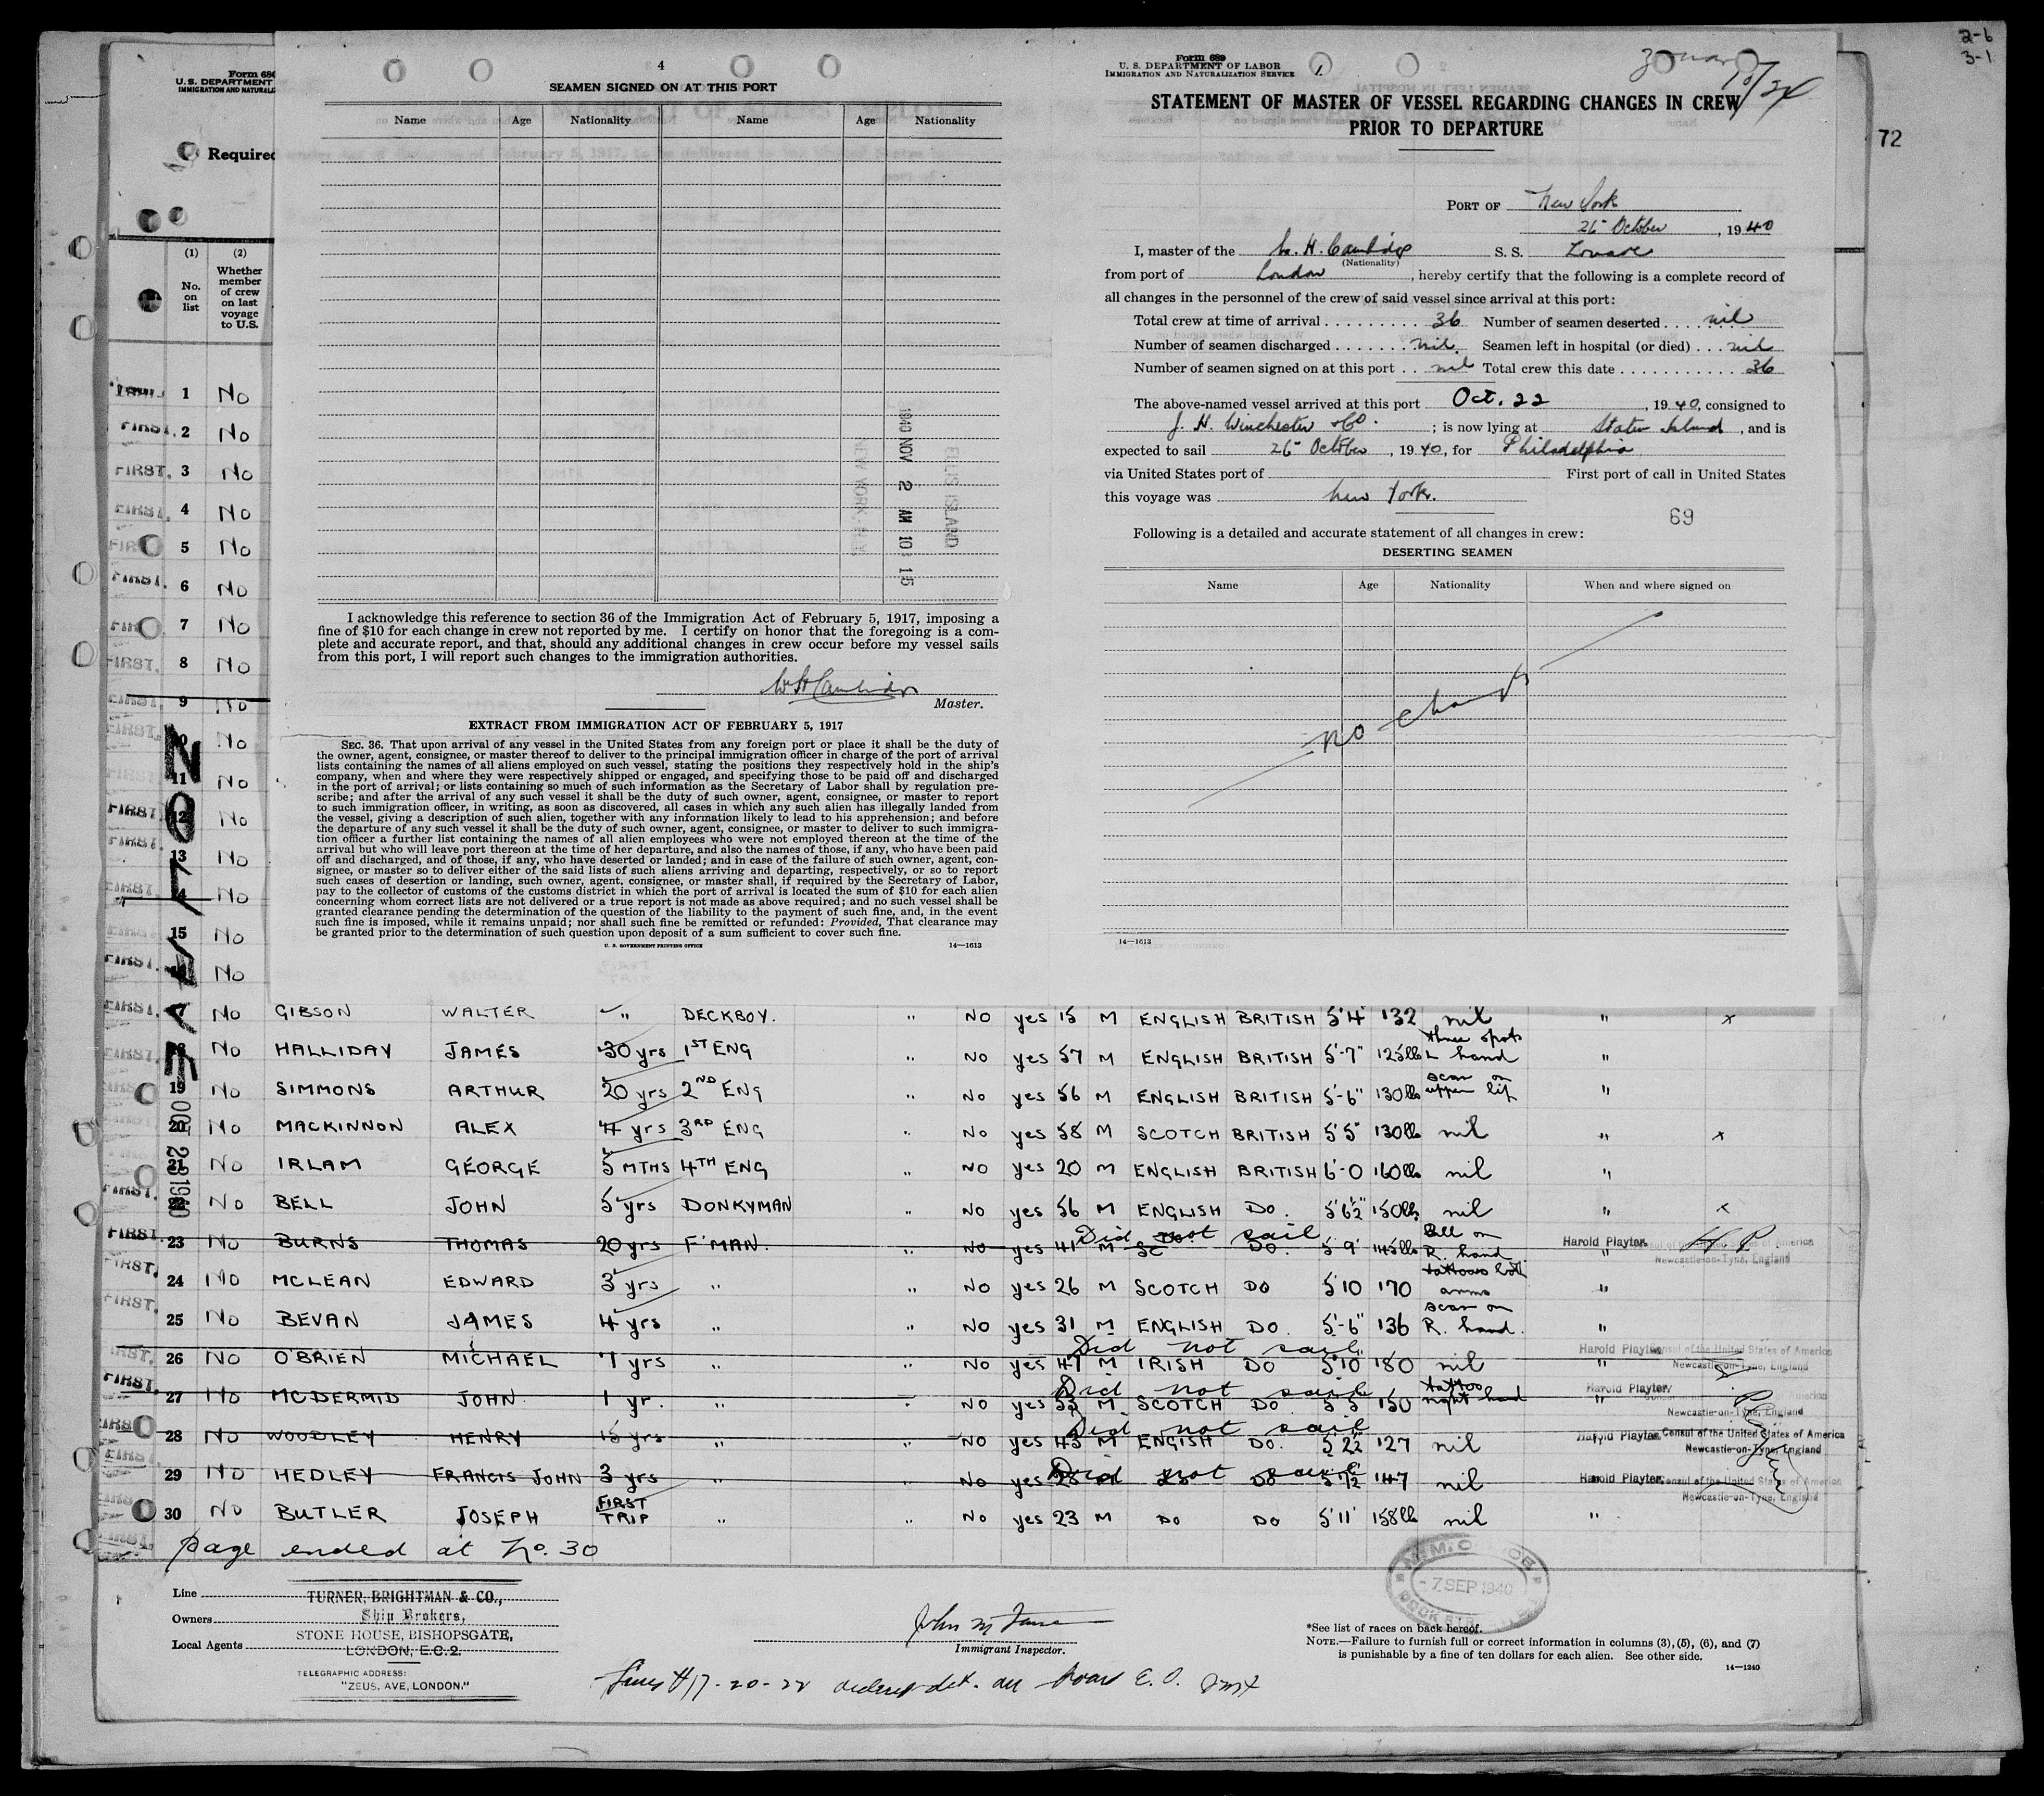 2-6
3-1
72
Form 680
U. S. DEPARTMENT
IMMIGRATION AND NATURALI
Required
(1) (2)
No. on list
Whether member of crew on last voyage to U.S.
1 No
FIRST. 2 No
FIRST. 3 No
FIRST. 4 No
FIR 5 No
FIRST. 6 No
FIR 7 No
FIRST. 8 No
FIRST. 9 No
FIRST. 10 No
FIRST. 11 No
FIRST. 12 No
FIRST. 13 No
FIRST. No
FIRST. 15 No
FIRST. No
OCT 1940
4
SEAMEN SIGNED ON AT THIS PORT
Name Age Nationality Name Age Nationality
1940 NOV 2 AM 10 15
ELLIS ISLAND
NEW YORK, N.Y.
I acknowledge this reference to section 36 of the Immigration Act of February 5, 1917, imposing a
fine of $10 for each change in crew not reported by me. I certify on honor that the foregoing is a com-
plete and accurate report, and that, should any additional changes in crew occur before my vessel sails
from this port, I will report such changes to the immigration authorities.
Master.
EXTRACT FROM IMMIGRATION ACT OF FEBRUARY 5, 1917
SEC. 36. That upon arrival of any vessel in the United States from any foreign port or place it shall be the duty of
the owner, agent, consignee, or master thereof to deliver to the principal immigration officer in charge of the port of arrival
lists containing the names of all aliens employed on such vessel, stating the positions they respectively hold in the ship's
company, when and where they were respectively shipped or engaged, and specifying those to be paid off and discharged
in the port of arrival; or lists containing so much of such information as the Secretary of Labor shall by regulation pre-
scribe; and after the arrival of any such vessel it shall be the duty of such owner, agent, consignee, or master to report
to such immigration officer, in writing, as soon as discovered, all cases in which any such alien has illegally landed from
the vessel, giving a description of such alien, together with any information likely to lead to his apprehension; and before
the departure of any such vessel it shall be the duty of such owner, agent, consignee, or master to deliver to such immigra-
tion officer a further list containing the names of all alien employees who were not employed thereon at the time of the
arrival but who will leave port thereon at the time of her departure, and also the names of those, if any, who have been paid
off and discharged, and of those, if any, who have deserted or landed; and in case of the failure of such owner, agent, con-
signee, or master so to deliver either of the said lists of such aliens arriving and departing, respectively, or so to report
such cases of desertion or landing, such owner, agent, consignee, or master shall, if required by the Secretary of Labor,
pay to the collector of customs of the customs district in which the port of arrival is located the sum of $10 for each alien
concerning whom correct lists are not delivered or a true report is not made as above required; and no such vessel shall be
granted clearance pending the determination of the question of the liability to the payment of such fine, and, in the event
such fine is imposed, while it remains unpaid; nor shall such fine be remitted or refunded: Provided, That clearance may
be granted prior to the determination of such question upon deposit of a sum sufficient to cover such fine.
U. S. GOVERNMENT PRINTING OFFICE 14—1613
Form 689
U. S. DEPARTMENT OF LABOR
IMMIGRATION AND NATURALIZATION SERVICE
1.
STATEMENT OF MASTER OF VESSEL REGARDING CHANGES IN CREW
PRIOR TO DEPARTURE
PORT OF New York
26 October, 1940
I, master of the (Nationality) S. S.
from port of London, hereby certify that the following is a complete record of
all changes in the personnel of the crew of said vessel since arrival at this port:
Total crew at time of arrival 36 Number of seamen deserted nil
Number of seamen discharged nil. Seamen left in hospital (or died) nil
Number of seamen signed on at this port nil Total crew this date 36
The above-named vessel arrived at this port Oct. 22, 1940, consigned to
J. H. Winchester & Co.; is now lying at Staten Island, and is
expected to sail 26 October, 1940, for Philadelphia
via United States port of First port of call in United States
this voyage was New York.
69
Following is a detailed and accurate statement of all changes in crew:
DESERTING SEAMEN
Name Age Nationality When and where signed on
no change
14—1613
FIRST. 17 No GIBSON WALTER " DECKBOY. " NO yes 15 M ENGLISH BRITISH 5'4 132 nil " x
FIRST. 18 No HALLIDAY JAMES 30 yrs 1ST ENG " NO yes 57 M ENGLISH BRITISH 5'-7" 125lbs three spots L hand "
19 No SIMMONS ARTHUR 20 yrs 2ND ENG " No yes 56 M ENGLISH BRITISH 5'-6" 130lbs scar on upper lip "
20 No MACKINNON ALEX 4 yrs 3RD ENG " No yes 58 M SCOTCH BRITISH 5'5" 130lb nil " x
21 No IRLAM GEORGE 5 MTHS 4TH ENG " NO yes 20 M ENGLISH BRITISH 6'-0 160lbs nil "
FIRST. 22 No BELL JOHN 5 yrs DONKYMAN " NO yes 56 M ENGLISH DO. 5'6½" 150lbs nil " x
FIRST. 23 No BURNS THOMAS 20 yrs F'MAN. " No yes 41 M SC DO. 5'9 145lbs Bell on R. hand " Did not sail Harold Playter. Consul of the United States of America Newcastle-on-Tyne, England H P
FIRST. 24 No MCLEAN EDWARD 3 yrs " " NO yes 26 M SCOTCH DO 5'10 170 tattoos both arms "
FIRST. 25 No BEVAN JAMES 4 yrs " " NO yes 31 M ENGLISH DO. 5'-6" 136 scar on R. hand. "
FIRST. 26 NO O'BRIEN MICHAEL 7 yrs " " NO yes 47 M IRISH DO 5'10 180 nil " Did not sail Harold Playter Consul of the United States of America Newcastle-on-Tyne, England
FIRST. 27 No MCDERMID JOHN. 1 yr. " " NO yes 53 M SCOTCH DO. 5'5 150 tattoo right hand " Did not sail Harold Playter. Newcastle-on-Tyne, England
FIRST 28 No WOODLEY HENRY 15 yrs " " NO yes 43 M ENGISH DO. 5'2½ 127 nil Did not sail Harold Playter. Consul of the United States of America Newcastle-on-Tyne, England
FIRST. 29 No HEDLEY FRANCIS JOHN 3 yrs " " No yes 28 M DO DO 5'7½ 147 nil Did not sail Harold Playter. Consul of the United States of America Newcastle-on-Tyne, England
FIRST 30 No BUTLER JOSEPH FIRST TRIP " " No yes 23 M DO DO 5'11' 158lb nil "
page ended at No. 30
Line TURNER, BRIGHTMAN & CO.,
Owners Ship Brokers,
STONE HOUSE, BISHOPSGATE,
Local Agents LONDON, E.C.2.
TELEGRAPHIC ADDRESS:
"ZEUS, AVE, LONDON."
Immigrant Inspector.
7 SEP 1940
*See list of races on back hereof.
NOTE.—Failure to furnish full or correct information in columns (3), (5), (6), and (7)
is punishable by a fine of ten dollars for each alien. See other side.
14—1240
17-20-22 on board E. O.